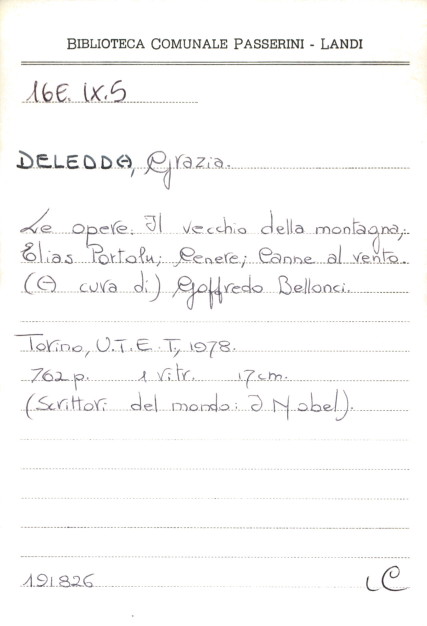 BIBLIOTECA COMUNALE PASSERINI - LANDI
16E. IX.5
DELEDDA, Grazia.
Le opere. Il vecchio della montagna;
Elias Portolu; Cenere; Canne al vento.
(A cura di) Goffredo Bellonci.
Torino, U.T.E.T., 1978.
762 p. 1 ritr. 17 cm.
(Scrittori del mondo: I Nobel).
191826